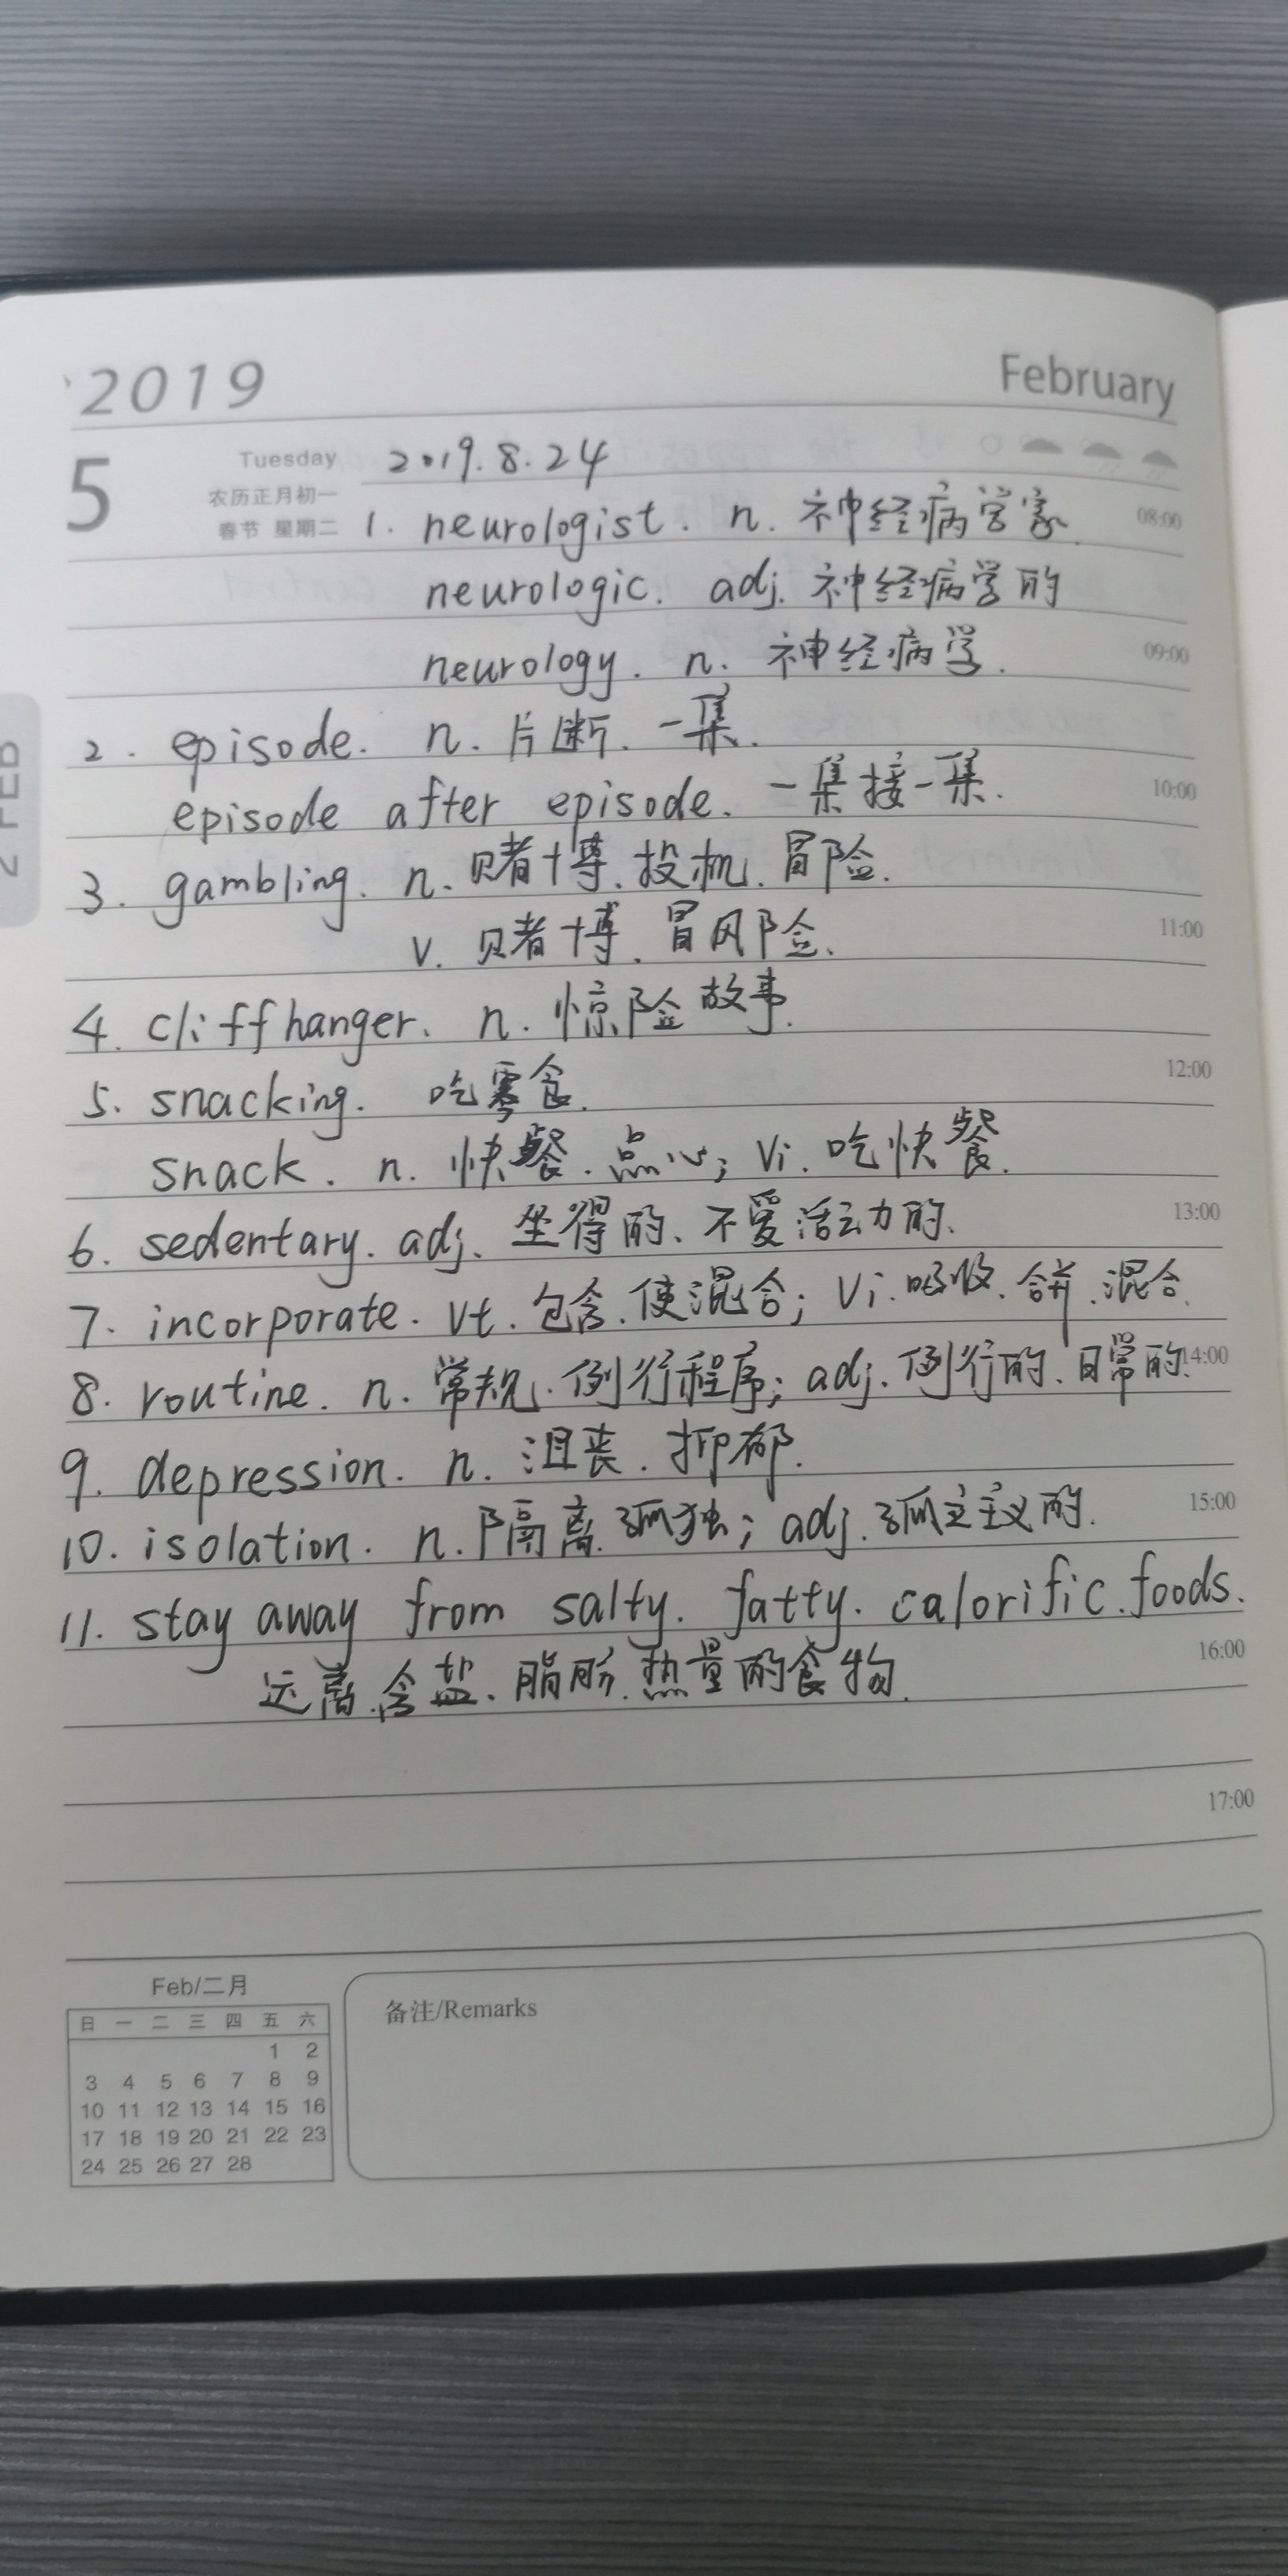 2019 February
5 Tuesday 2019.8.24
农历正月初一
春节 星期二 1. neurologist. n. 神经病学家. 08:00
neurologic. adj. 神经病学的
neurology. n. 神经病学. 09:00
2. episode. n. 片断. 一集.
episode after episode. 一集接一集. 10:00
3. gambling. n. 赌博. 投机. 冒险.
v. 赌博. 冒风险. 11:00
4. cliffhanger. n. 惊险故事.
5. snacking. 吃零食. 12:00
snack. n. 快餐. 点心; vi. 吃快餐.
6. sedentary. adj. 坐得的、不爱活动的. 13:00
7. incorporate. vt. 包含. 使混合; vi. 吸收. 合并. 混合.
8. routine. n. 常规. 例行程序; adj. 例行的、日常的. 14:00
9. depression. n. 沮丧. 抑郁.
10. isolation. n. 隔离. 孤独; adj. 孤立主义的. 15:00
11. stay away from salty. fatty. calorific. foods.
远离含盐、脂肪. 热量的食物. 16:00
17:00
2 FEB
Feb/二月
日 一 二 三 四 五 六
1 2
3 4 5 6 7 8 9
10 11 12 13 14 15 16
17 18 19 20 21 22 23
24 25 26 27 28
备注/Remarks